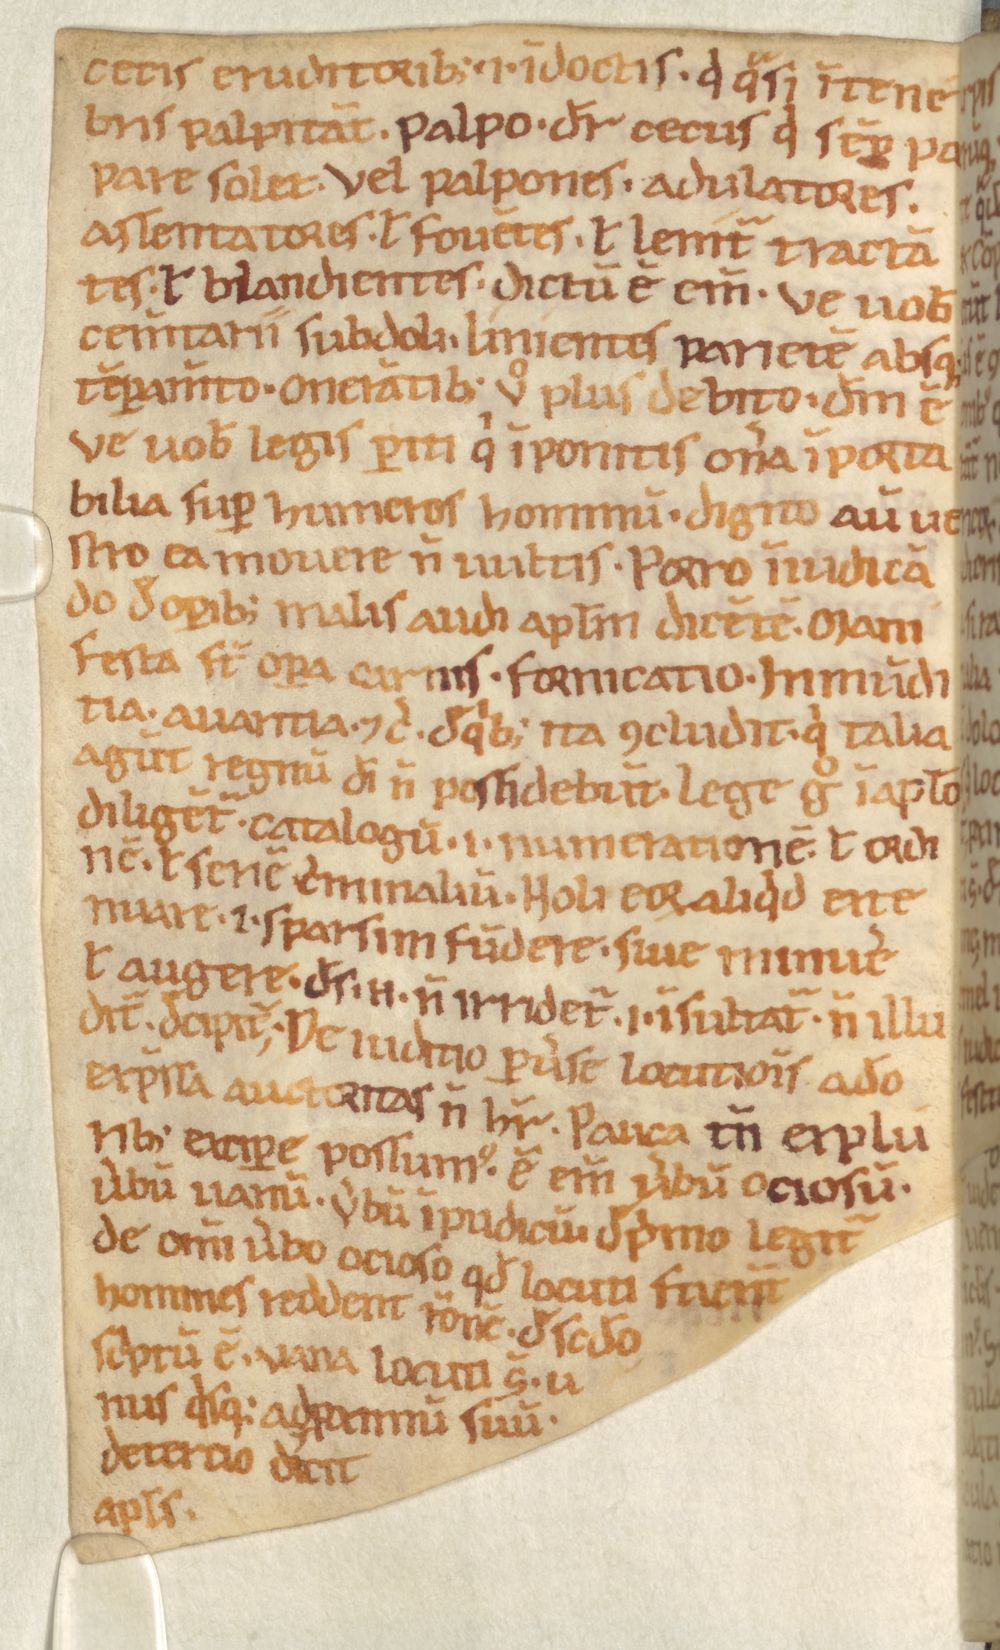 cecis eruditorib; ·i· īdoctis · q̄ q̄si ī tene
bris palpitāt. Palpo · dr̄ cecus q̄ sēp pa
pare solet. Vel palpones · adulatores.
assentatores · ł fouētes · ł lenit̄ tractā
tes · ł blandientes · dictū ē em̄ · ve uob̄
cem̄tarii subdoli · linientes parietē absq;
tēperam̄to · Onerātib; v̊ plus debito · dm̄ ē
ve uob̄ legis periti qⁱ īponitis on̄a īporta
bilia sup̄ humeros hominū · digito aū ue
stro ea mouere n̄ uultis · Porro īiudicā
do d̄ op̄ib; malis audi apl̄m dicētē · Mani
festa st̄ op̄a carnis · fornicatio · Inmūdi
tia · auaritia · ⁊ c̄ · d̄ qⁱb; ita ꝯcludit · qⁱ talia
agūt regnū dī n̄ possidebūt · lege g̊ ī apl̄o
diligēt̄ · catalogū · i · numerationē · ł ordi
nē · ł seriē cⁱminaliū · Noli eoꝝ aliqⁱd exte
nuare · i · sparsim fūdere · siue minuē
ł augere · d̄s · n · n̄ irridet̄ · i · īsultat̄ · n̄ illu
dit̄ · decipit̄; De iuditio puse locutiōis adō
exp̄ssa auctoritas n̄ hr̄. Pauca tn̄ ex plu
rib; excip̄e possum⁹ · ē em̄ ūbū ociosū ·
ūbū uanū · Ūbū īpudicū · d̄ pⁱmo legit̄
de om̄i ūbo ocioso qd̄ locuti fuerīt
homines reddent rōnē · d̄ scdō
scⁱptū ē · uana locuti s̄ · u
nus qⁱsq; ad pximū suū ·
de tertio dicit
apl̄s ·